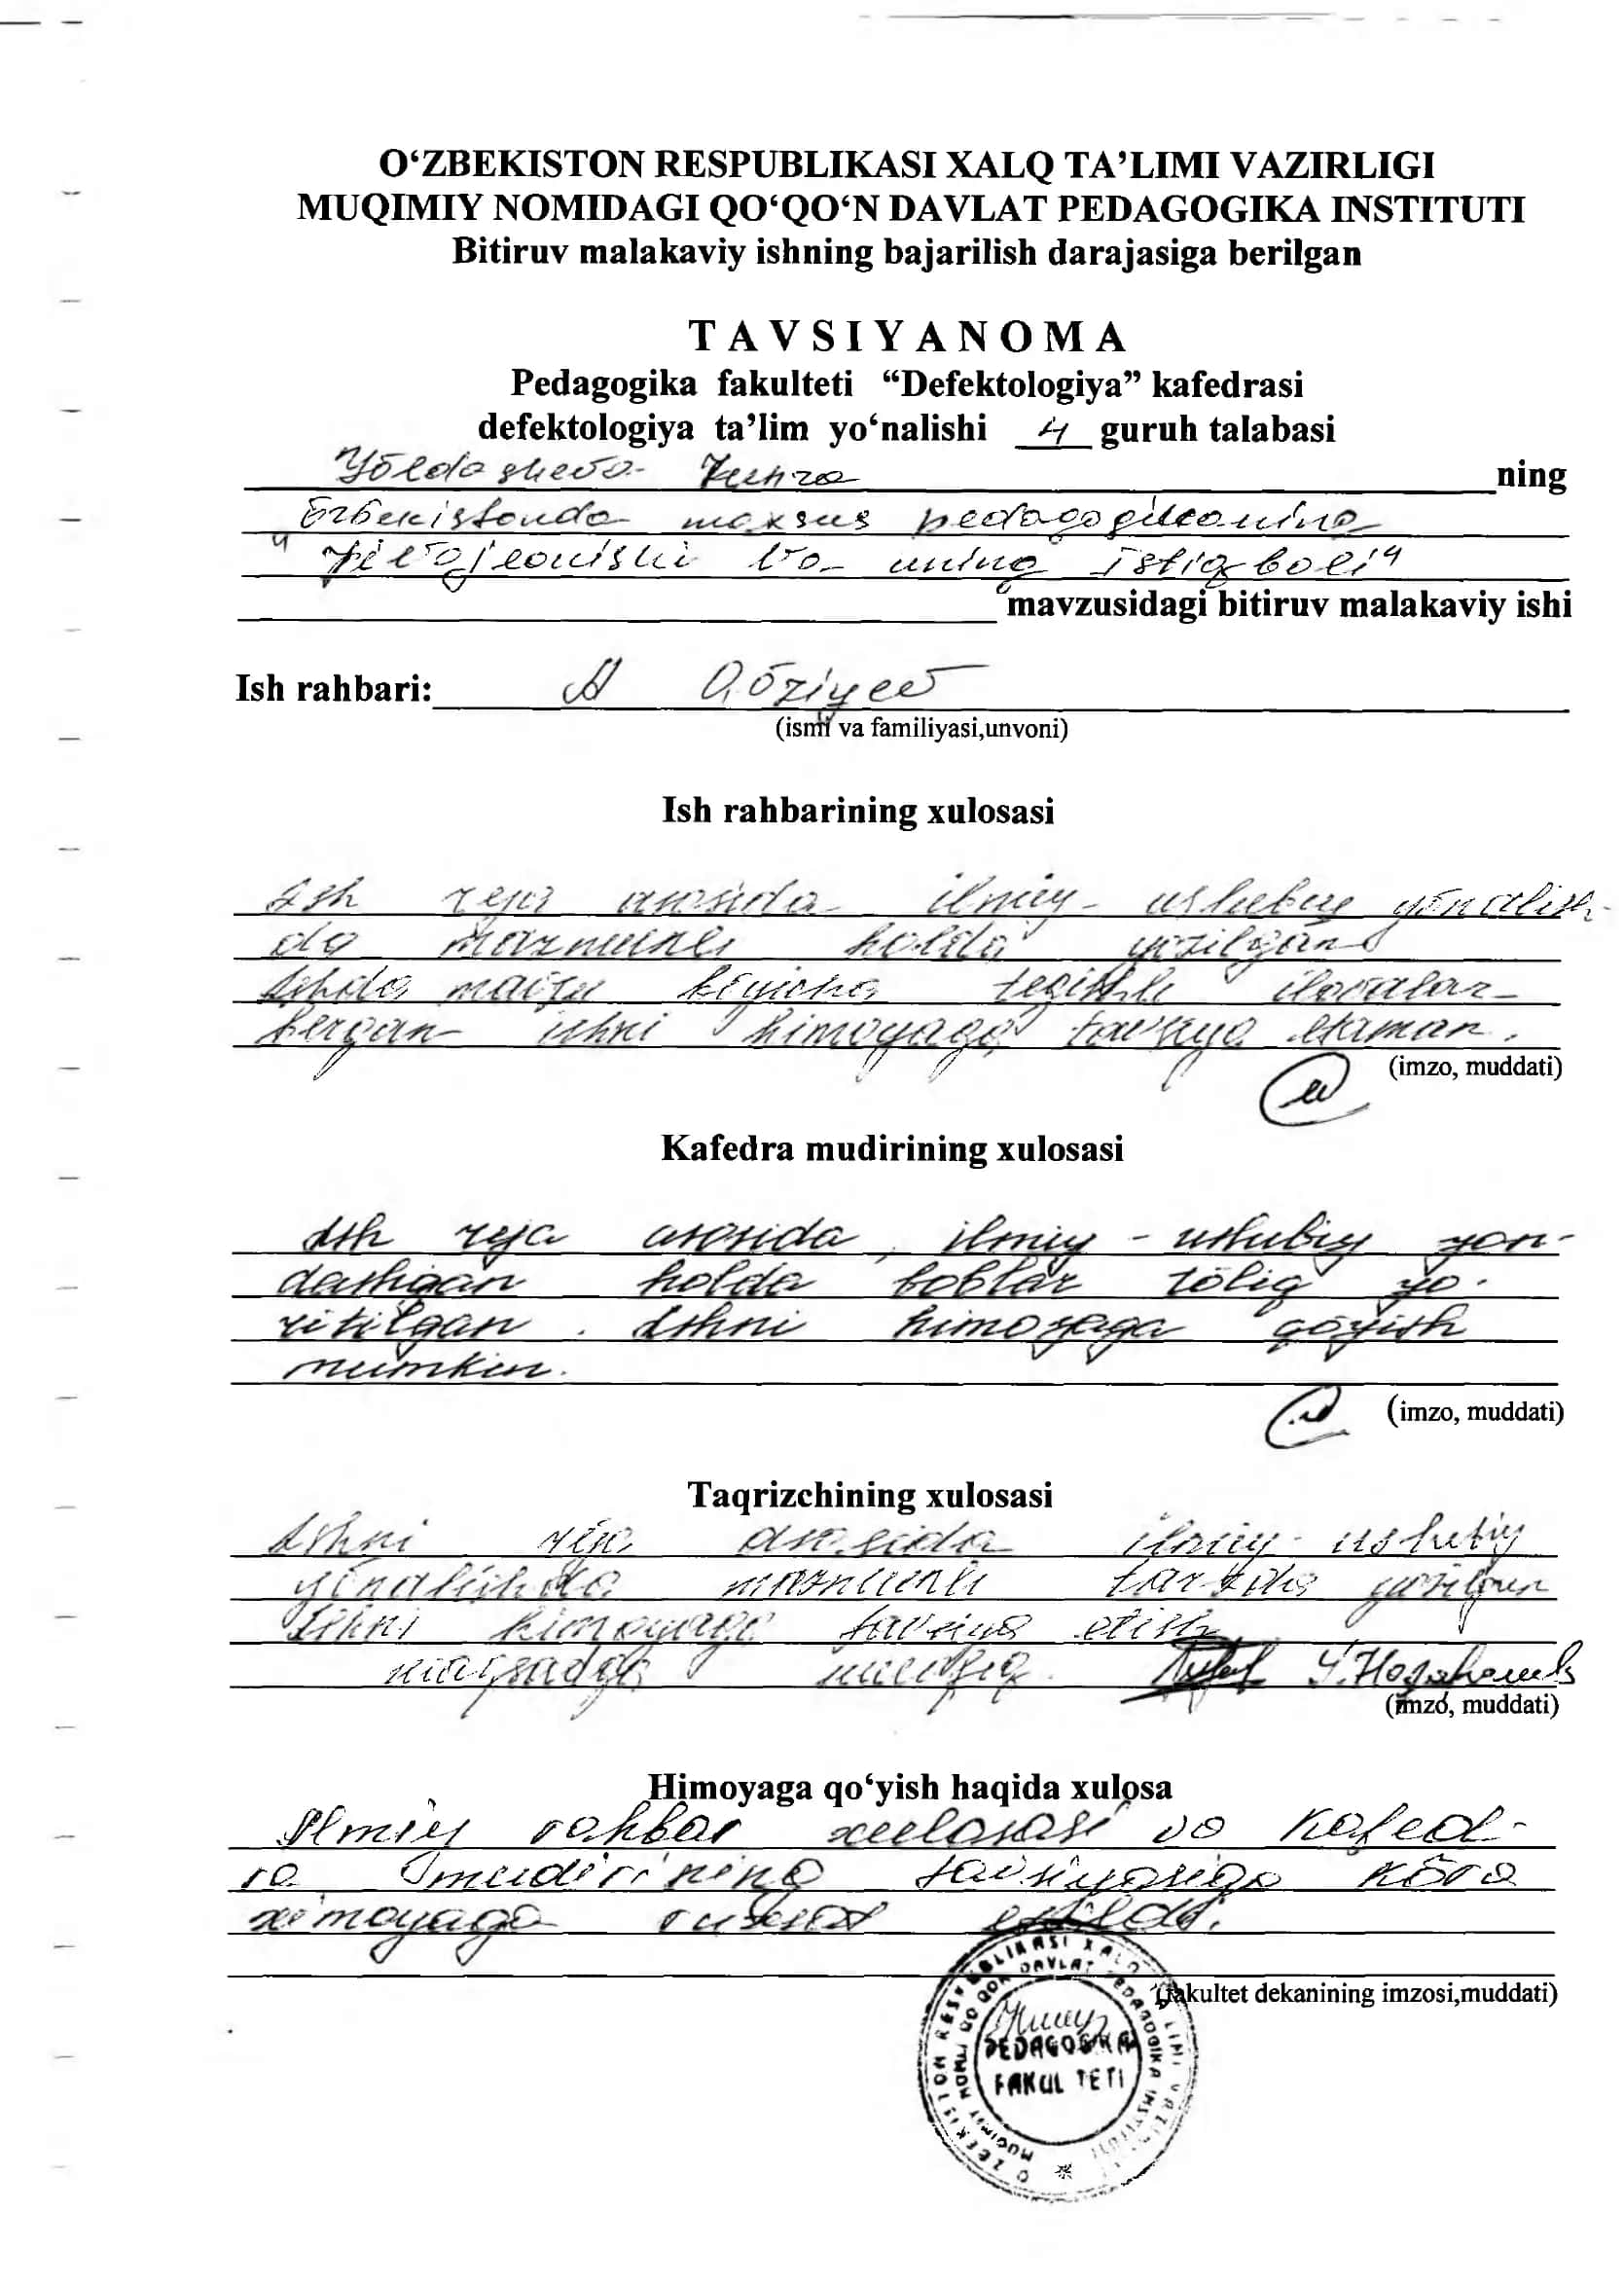 O‘ZBEKISTON RESPUBLIKASI XALQ TA’LIMI VAZIRLIGI
MUQIMIY NOMIDAGI QO‘QO‘N DAVLAT PEDAGOGIKA INSTITUTI
Bitiruv malakaviy ishning bajarilish darajasiga berilgan
T A V S I Y A N O M A
Pedagogika fakulteti “Defektologiya” kafedrasi
defektologiya ta’lim yo‘nalishi 4 guruh talabasi
Yõldasheva ning
Õzbekistonda maxsus pedagogikaning
"rivojlanishi va uning istiqboli"
mavzusidagi bitiruv malakaviy ishi
Ish rahbari: A
(ismi va familiyasi,unvoni)
Ish rahbarining xulosasi
Ish reja asosida ilmiy- uslubiy yõnalish-
da mazmunli holda yozilgan
Ishda mavzu bõyicha tegishli ilovalar
bergan ishni himoyaga tavsiya etaman.
(imzo, muddati)
Kafedra mudirining xulosasi
Ish reja asosida, ilmiy - uslubiy yon-
dashgan holda boblar tõliq yo-
ritilgan. Ishni himoyaga qõyish
mumkin.
(imzo, muddati)
Taqrizchining xulosasi
Ishni reja asosida ilmiy- uslubiy
yõnalishda mazmunli tarzda yozilgan
Ishni himoyaga tavsiya etish
maqsadga muofiq.
(imzo, muddati)
Himoyaga qo‘yish haqida xulosa
Ilmiy rahbar xulosasi va kafed-
ra mudirining tavsiyasiga kõra
ximoyaga ruxsat etildi.
(fakultet dekanining imzosi,muddati)
O‘ZBEKISTON RESPUBLIKASI XALQ TA’LIMI VAZIRLIGI
MUQIMIY NOMLI QO‘QON DAVLAT PEDAGOGIKA INSTITUTI
PEDAGOGIKA
FAKULTETI